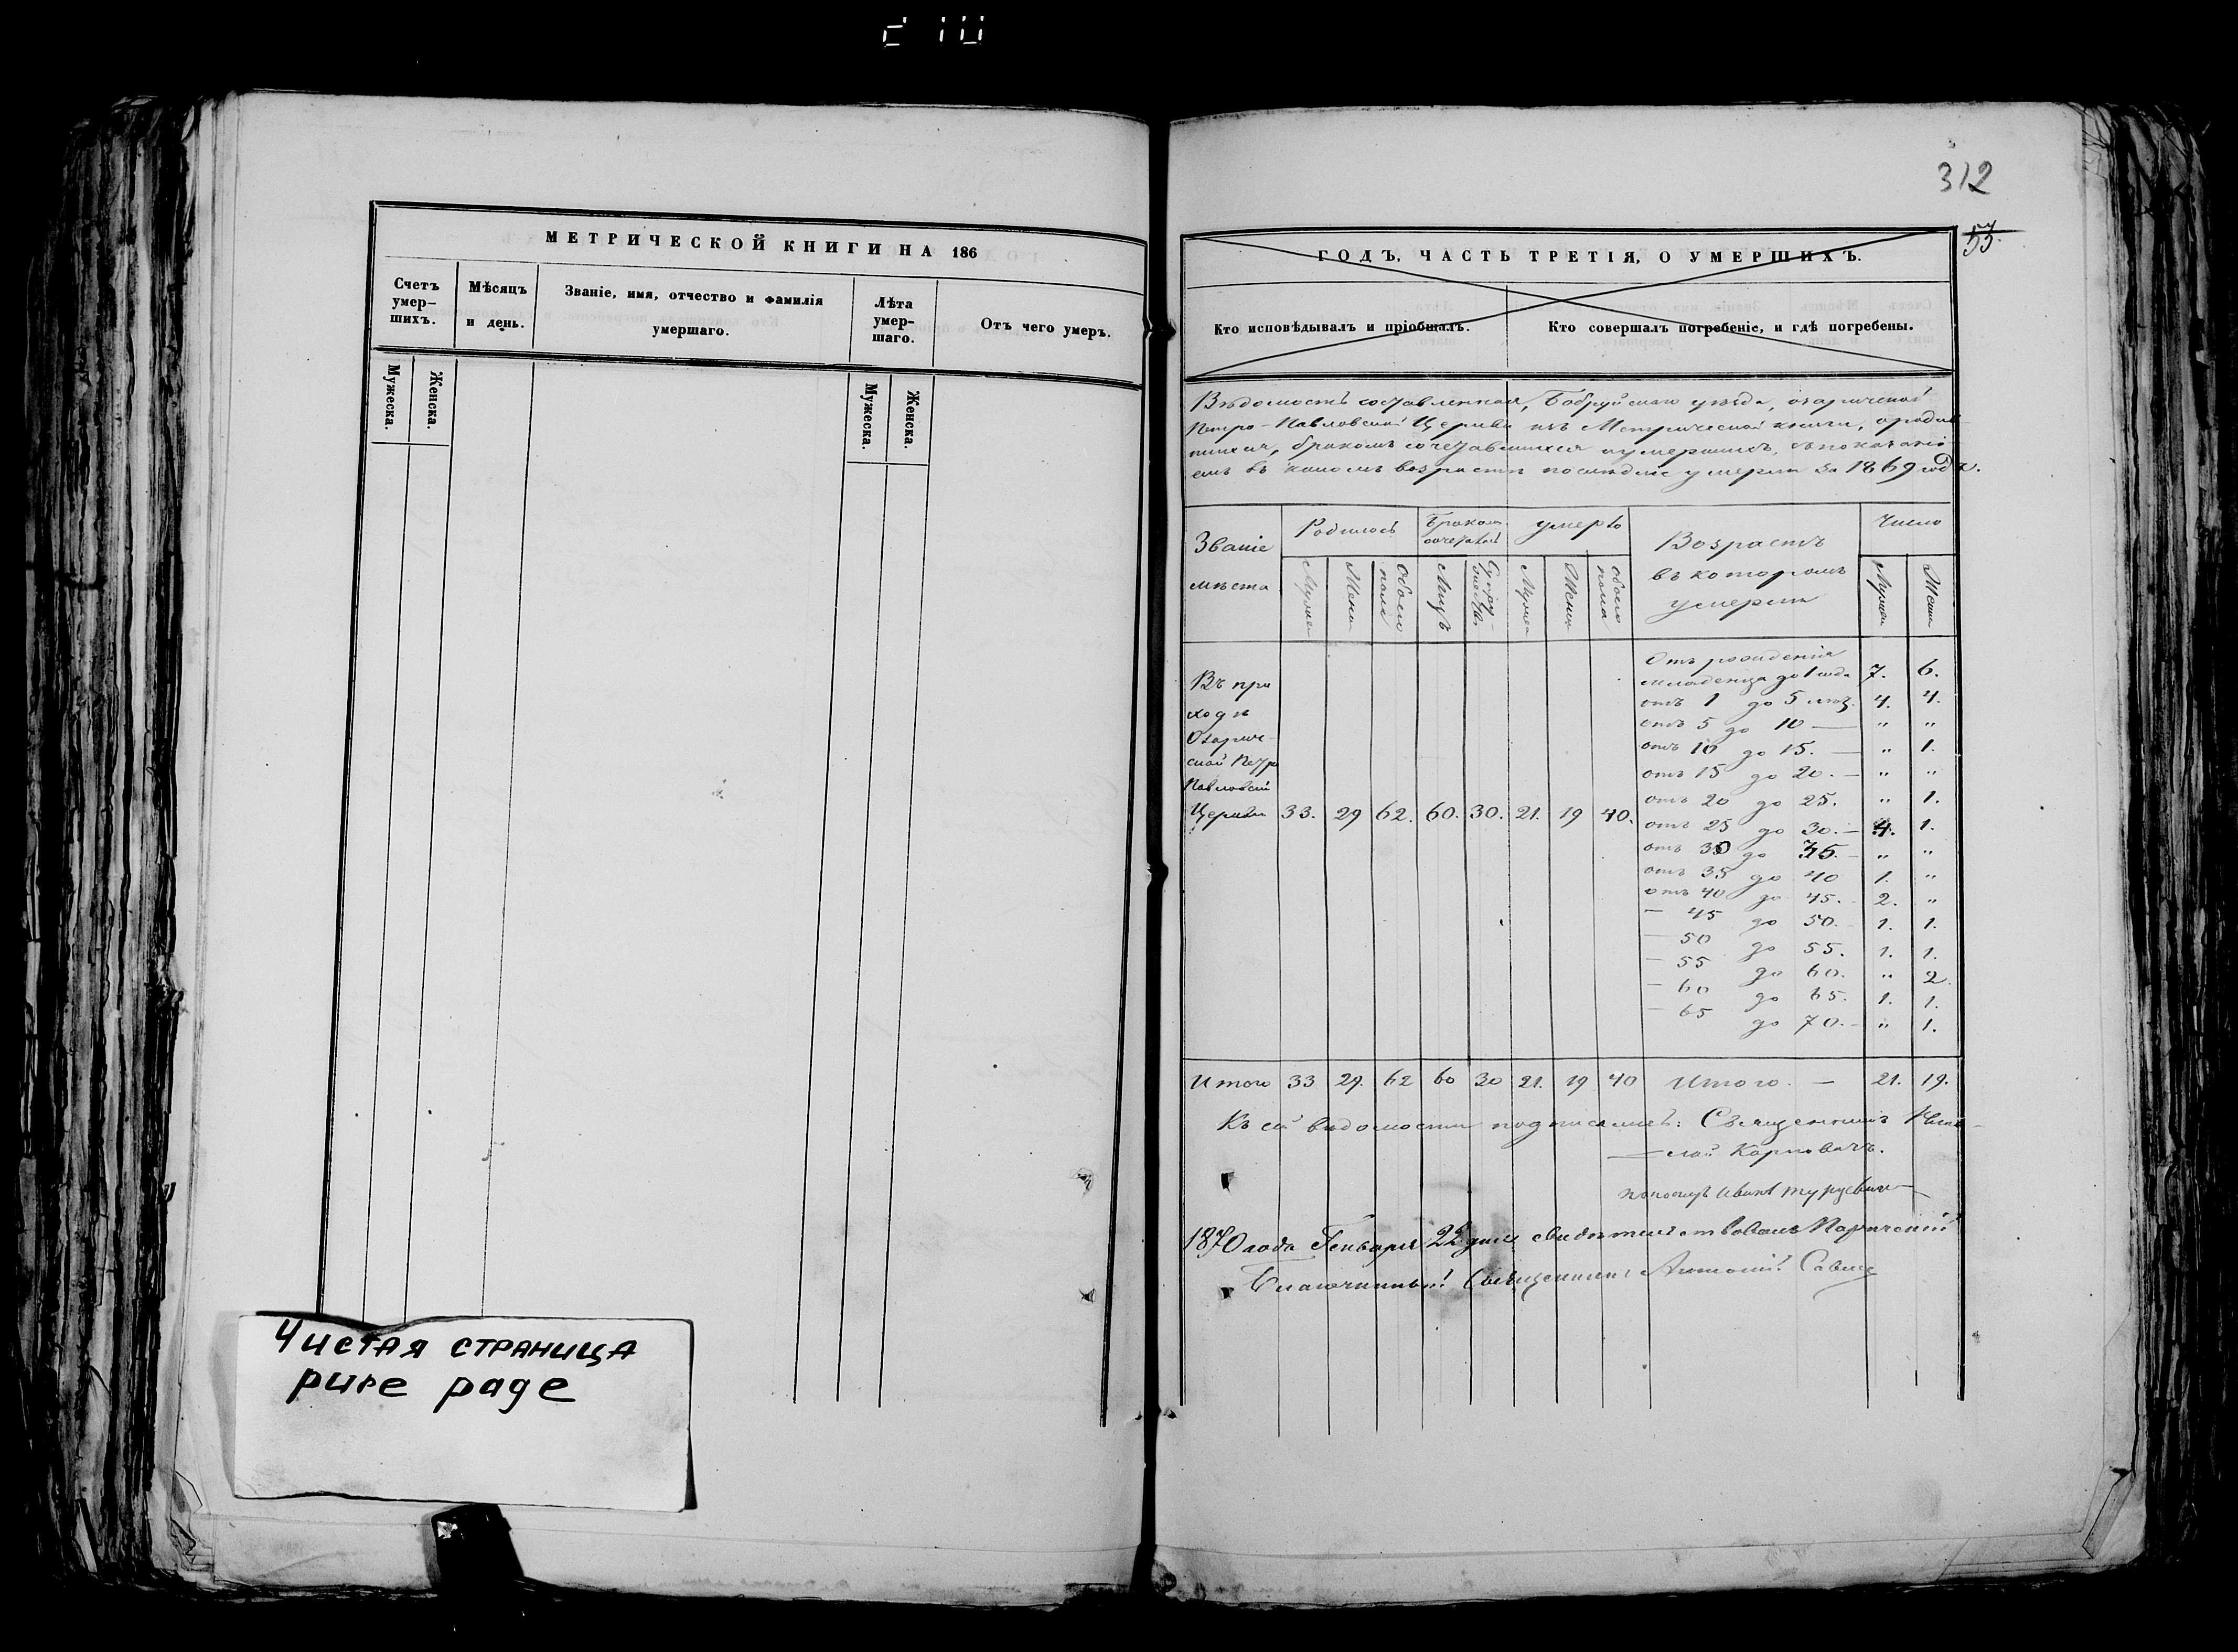 210
МЕТРИЧЕСКОЙ КНИГИ НА 186
Счетъ умер-шихъ.
Мѣсяцъ и день.
Званіе, имя, отчество и фамилія умершаго.
Лѣта умер-шаго.
Отъ чего умеръ.
Мужеска.
Женска.
Мужеска.
Женска.
Чистая страница
pure page
312
53.
ГОДЪ, ЧАСТЬ ТРЕТІЯ, О УМЕРШИХЪ.
Кто исповѣдывалъ и пріобщалъ.
Кто совершалъ погребеніе, и гдѣ погребены.
Вѣдомость составленная, Бобруйскаго уѣзда, Озаричской
Петро-Павловской Церкви изъ Метрической книги, о родив
шихся, бракомъ сочетавшихся и умершихъ, съ показані
емъ въ какомъ возрастѣ послѣдніе умерли за 1869 годъ.
Званіе мѣста
Родилось
Бракомъ
умерло
Возрастъ въ которомъ умерли
Число
Мужеск
Женск
Обоего пола
Лицъ
Супру-
Мужеск
Женск
Обоего пола
Мужеск
Женск
Въ при
ходѣ
Озарич-
ской Петро
Павловской
Церкви 33. 29 62. 60. 30. 21. 19 40.
Отъ рожденія
младенца до 1 года 7. 6.
отъ 1 до 5 лѣтъ. 4. 4.
отъ 5 до 10 — " "
отъ 10 до 15. — " 1.
отъ 15 до 20. — " "
отъ 20 до 25. " 1.
отъ 25 до 30. — 4. 1.
отъ 30 до 35. — " "
отъ 35 до 40 1. "
отъ 40 до 45. 2. "
— 45 до 50. 1. 1.
— 50 до 55. 1. 1.
— 55 до 60. " 2.
— 60 до 65. 1. 1.
— 65 до 70. — " 1.
Итого 33 29. 62 60 30 21. 19 40 Итого. — 21. 19.
Къ сей вѣдомости подписались: Священникъ
Карповичъ.
1870 года Генваря 22 дня свидѣтельствовалъ Паричскій
Благочинный Священникъ Антоній Савич